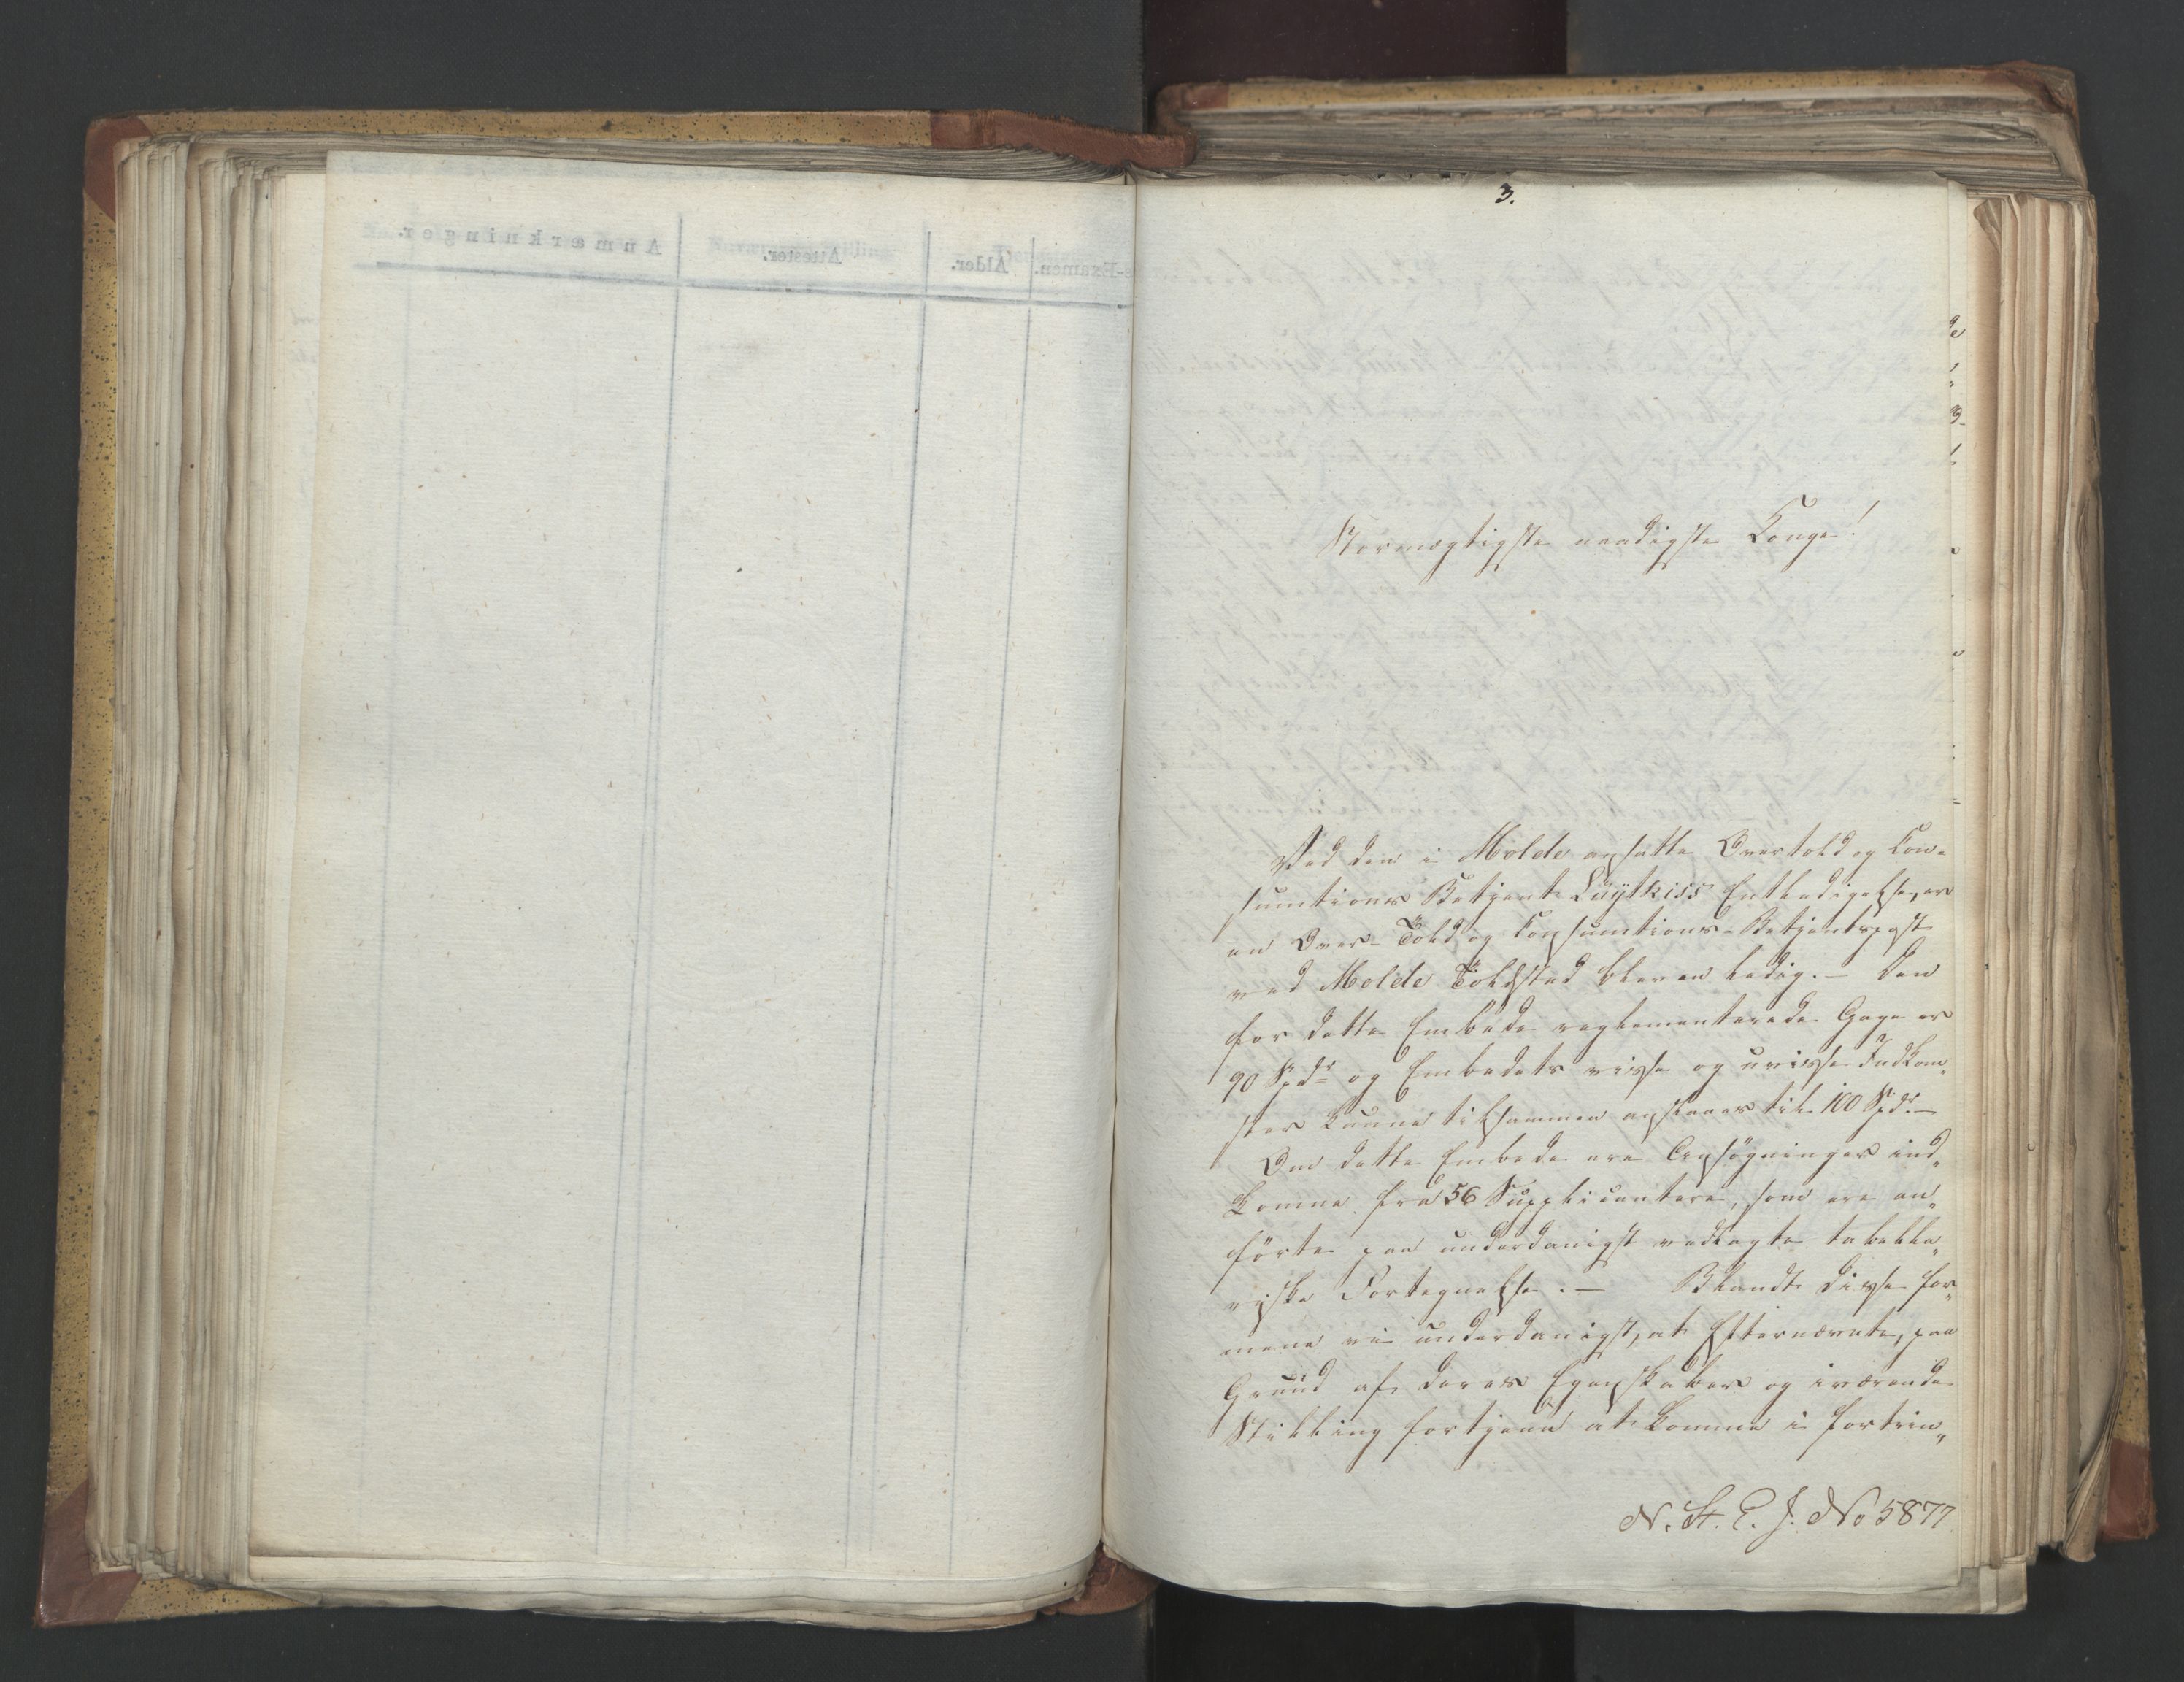 3.
Stormægtigste naadigste Konge!
Ved den i Molde ansatte Overtold og Con-
sumtions Betjent Luÿtkiss Entledigelse, er
en Over-Told og Consumtions-Betjentpost
ved Molde Toldsted bleven ledig. — Den
for dette Embede reglementerede Gage er
90 Spdr og Embedets visse og uvisse Indkom„
ster kunne tilsammen ansees til 100 Spdr. —
Om dette Embede ere Ansøgninger ind„
komne fra 56 Supplicantere, som ere an„
førte paa underdanigst vedlagte tabella„
riske Fortegnelse. — Blandt disse for„
mene vi underdanigst, at Efternævnte, paa
Grund af deres Egenskaber og iværende
Stilling fortjene at komme i fortrin„
N. St. E. J. No 5877